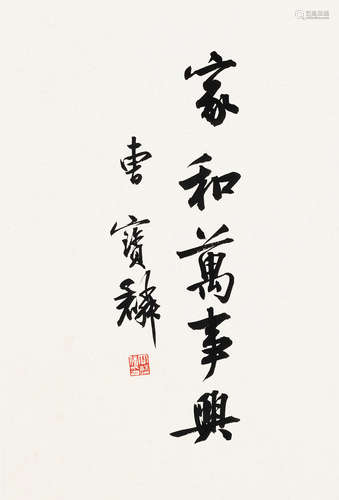 家和萬事興
曹寶麟